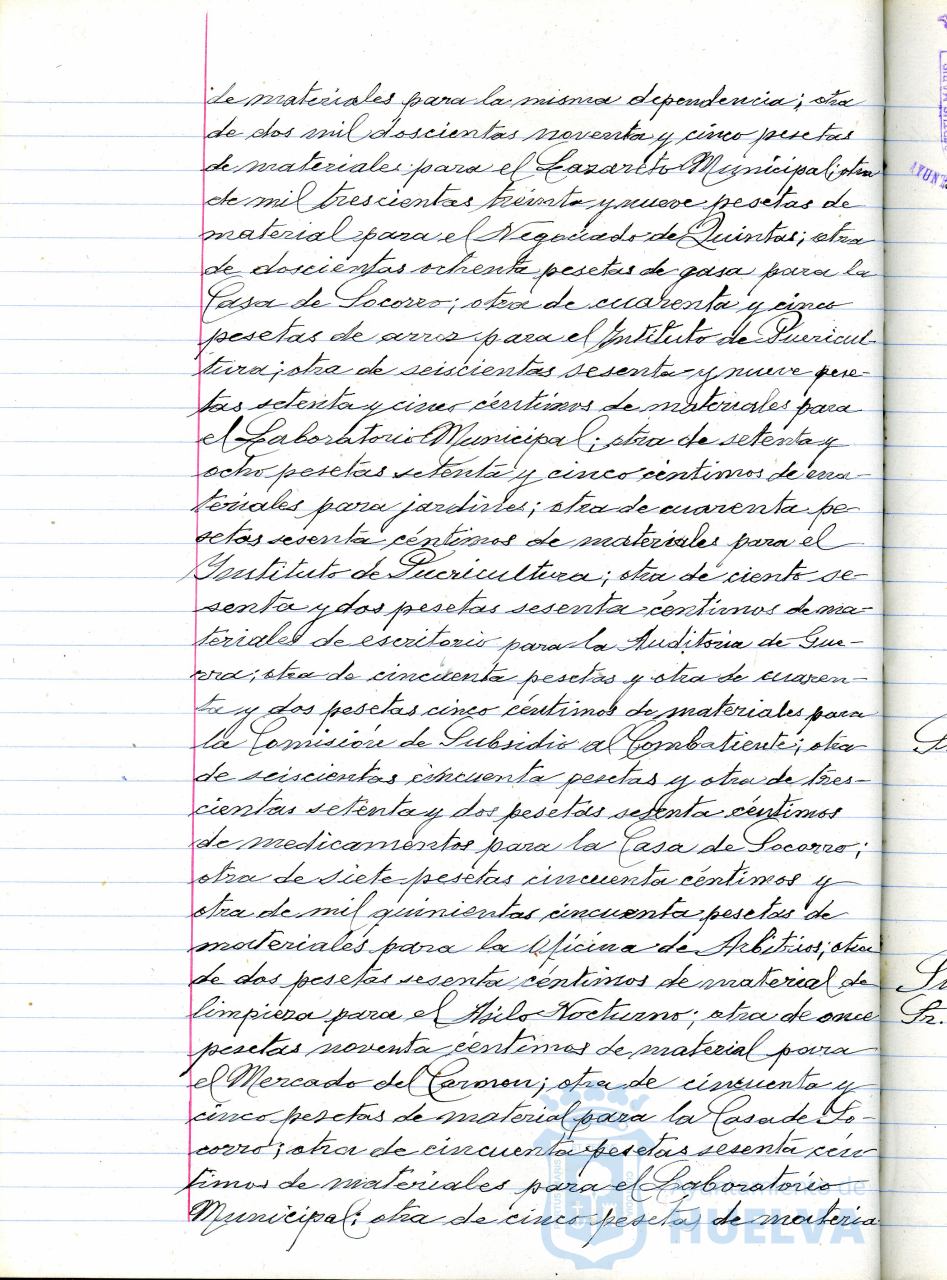 de materiales para la misma dependencia; otra
de dos mil doscientas noventa y cinco pesetas
de materiales para el Lazareto Municipal; otra
de mil trescientas treinta y nueve pesetas de
material para el Negociado de Quintas; otra
de doscientas ochenta pesetas de gasa para la
Casa de Socorro; otra de cuarenta y cinco
pesetas de arroz para el Intituto de Puericul-
tura; otra de seiscientas sesenta y nueve pese-
tas setenta y cinco céntimos de materiales para
el Laboratorio Municipal; otra de setenta y
ocho pesetas setenta y cinco céntimos de ma-
teriales para jardines; otra de cuarenta pe-
setas sesenta céntimos de materiales para el
Instituto de Puericultura; otra de ciento se-
senta y dos pesetas sesenta céntimos de ma-
teriales de escritorio para la Auditoria de Gue-
rra; otra de cincuenta pesetas y otra de cuaren-
ta y dos pesetas cinco céntimos de materiales para
la Comisión de Subsidio al Combatiente; otra
de seiscientas cincuenta pesetas y otra de tres-
cientas setenta y dos pesetas sesenta céntimos
de medicamentos para la Casa de Socorro;
otra de siete pesetas cincuenta céntimos y
otra de mil quinientas cincuenta pesetas de
materiales para la Oficina de Arbitrios; otra
de dos pesetas sesenta céntimos de material de
limpieza para el Asilo Nocturno; otra de once
pesetas noventa céntimos de material para
el Mercado del Carmen; otra de cincuenta y
cinco pesetas de material para la Casa de So-
corro; otra de cincuenta pesetas sesenta cén-
timos de materiales para el Laboratorio
Municipal; otra de cinco pesetas de materia
Ayuntamiento de
HUELVA